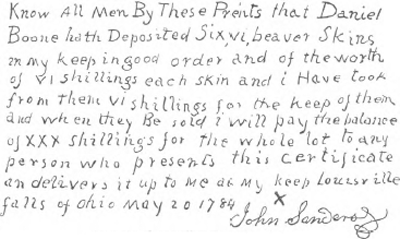 Know All Men By These Prents that Daniel
Boone hath Deposited Six, vi, beaver Skins
in my keep in good order and of the worth
of vi shillings each skin and i Have took
from them vi shillings for the keep of them
and when they Be sold i will pay the balance
of XXX shillings for the whole lot to any
person who presents this certificate
an delivers it up to me at my keep Louisville
falls of Ohio May 20 1784 X
John Sanders